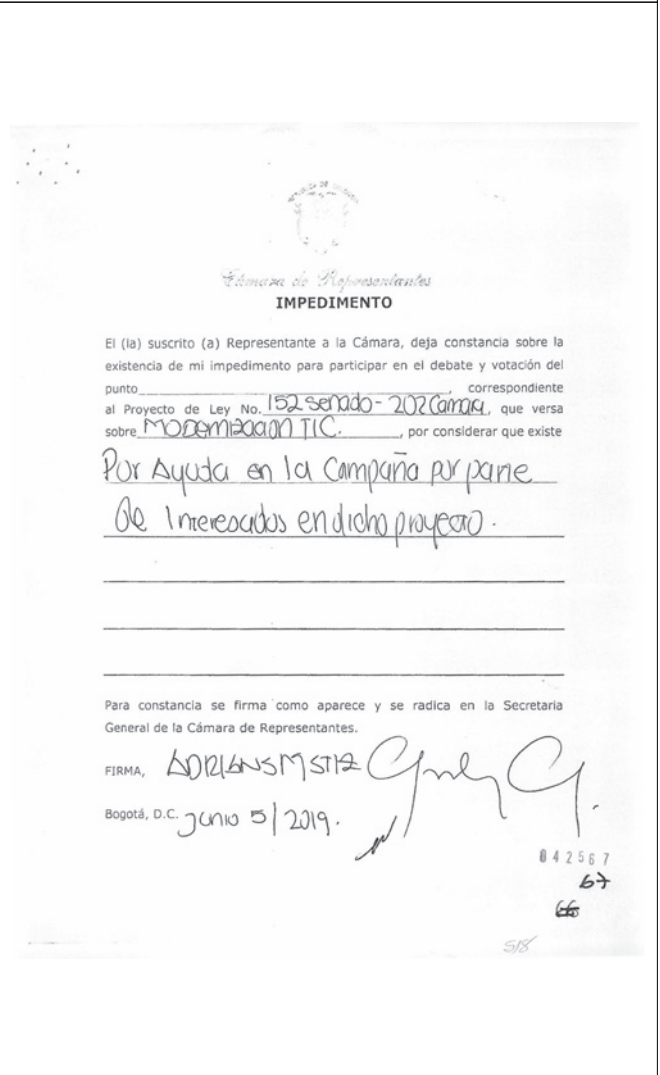 REPUBLICA DE COLOMBIA
Cámara de Representantes
IMPEDIMENTO
El (la) suscrito (a) Representante a la Cámara, deja constancia sobre la
existencia de mi impedimento para participar en el debate y votación del
punto____________________, correspondiente
al Proyecto de Ley No. 152 Senado - 202 Camara, que versa
sobre Modernización TIC. , por considerar que existe
Por Ayuda en la Campaña por parte
de Interesados en dicho proyecto.
Para constancia se firma como aparece y se radica en la Secretaria
General de la Cámara de Representantes.
FIRMA, ADRIANA
Bogotá, D.C. junio 5/2019.
042567
67
66
518